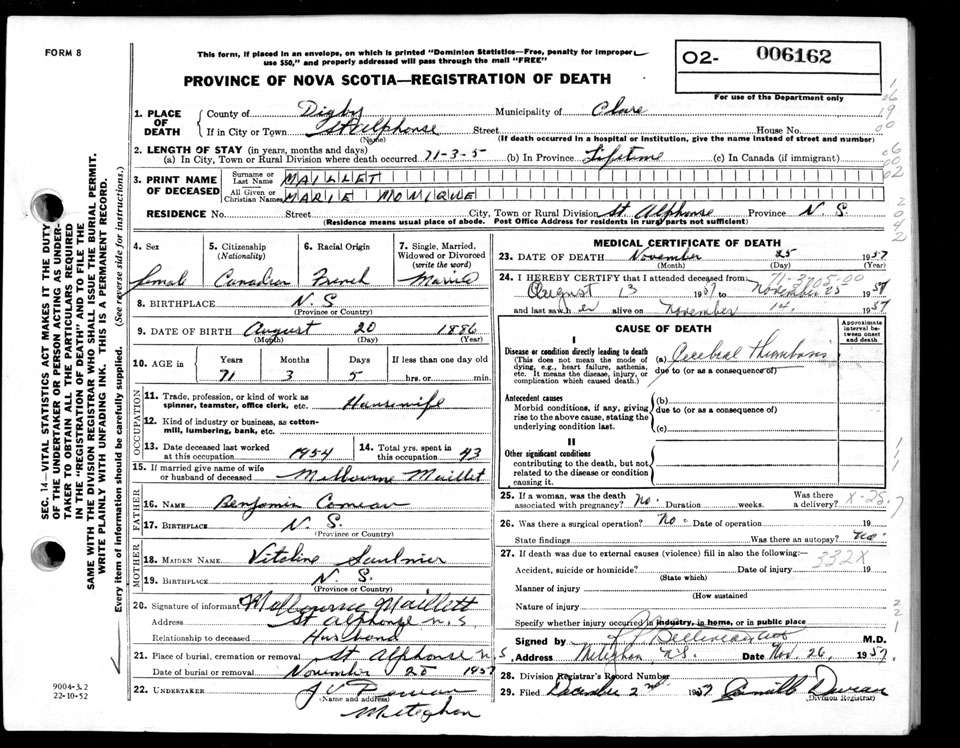 FORM 8
This form, if placed in an envelope, on which is printed "Dominion Statistics—Free, penalty for improper
use $50," and properly addressed will pass through the mail "FREE"
PROVINCE OF NOVA SCOTIA—REGISTRATION OF DEATH
O2- 006162
For use of the Department only
1. PLACE OF DEATH
County of Digby Municipality of Clare
If in City or Town St Alphonse Street House No.
(Name) (If death occurred in a hospital or institution, give the name instead of street and number)
2. LENGTH OF STAY (in years, months and days)
(a) In City, Town or Rural Division where death occurred 71-3-5 (b) In Province Lifetime (c) In Canada (if immigrant)
3. PRINT NAME OF DECEASED
Surname or Last Name MAILLET
All Given or Christian Names MARIE MONIQUE
RESIDENCE No. Street City, Town or Rural Division St. Alphonse Province N. S
(Residence means usual place of abode. Post Office Address for residents in rural parts not sufficient)
4. Sex
female
5. Citizenship
(Nationality)
Canadian
6. Racial Origin
French
7. Single, Married,
Widowed or Divorced
(write the word)
Married
8. BIRTHPLACE N. S
(Province or Country)
9. DATE OF BIRTH August 20 1886
(Month) (Day) (Year)
10. AGE in
Years Months Days If less than one day old
71 3 5 hrs. or min.
OCCUPATION
11. Trade, profession, or kind of work as
spinner, teamster, office clerk, etc. Housewife
12. Kind of industry or business, as cotton-
mill, lumbering, bank, etc.
13. Date deceased last worked
at this occupation 1954
14. Total yrs. spent in
this occupation 43
15. If married give name of wife
or husband of deceased Melbourne Maillet
FATHER
16. NAME Benjamin Comeau
17. BIRTHPLACE N. S
(Province or Country)
MOTHER
18. MAIDEN NAME Vitaline Saulnier
19. BIRTHPLACE N. S.
(Province or Country)
20. Signature of informant Melbourne Maillett
Address St Alphonse N. S
Relationship to deceased Husband
21. Place of burial, cremation or removal St Alphonse N. S
Date of burial or removal November 28 1957
22. UNDERTAKER J V
(Name and address)
Meteghan
MEDICAL CERTIFICATE OF DEATH
23. DATE OF DEATH November 25 1957
(Month) (Day) (Year)
24. I HEREBY CERTIFY that I attended deceased from
August 13 1957 to November 25 1957
and last saw her alive on November 14, 1957
CAUSE OF DEATH
Approximate
interval be-
tween onset
and death
I
Disease or condition directly leading to death
(This does not mean the mode of
dying, e.g., heart failure, asthenia,
etc. It means the disease, injury, or
complication which caused death.)
(a) Cerebral Thrombosis
due to (or as a consequence of)
Antecedent causes
Morbid conditions, if any, giving
rise to the above cause, stating the
underlying condition last.
(b)
due to (or as a consequence of)
(c)
II
Other significant conditions
contributing to the death, but not
related to the disease or condition
causing it.
25. If a woman, was the death
associated with pregnancy? No. Duration weeks.
Was there
a delivery?
26. Was there a surgical operation? No. Date of operation 19
State findings Was there an autopsy? No.
27. If death was due to external causes (violence) fill in also the following:—
332X
Accident, suicide or homicide? Date of injury 19
(State which)
Manner of injury
(How sustained
Nature of injury
Specify whether injury occurred in industry, in home, or in public place
Signed by Belliveau M.D.
Address Meteghan, N.S. Date Nov. 26, 1957.
28. Division Registrar's Record Number
29. Filed December 2nd 1957
(Division Registrar)
SEC. 14—VITAL STATISTICS ACT MAKES IT THE DUTY
OF THE UNDERTAKER OR PERSON ACTING AS UNDER-
TAKER TO OBTAIN ALL THE PARTICULARS REQUIRED
IN THE "REGISTRATION OF DEATH" AND TO FILE THE
SAME WITH THE DIVISION REGISTRAR WHO SHALL ISSUE THE BURIAL PERMIT.
WRITE PLAINLY WITH UNFADING INK. THIS IS A PERMANENT RECORD.
Every item of information should be carefully supplied. (See reverse side for instructions.)
9004-3.2
22-10-52